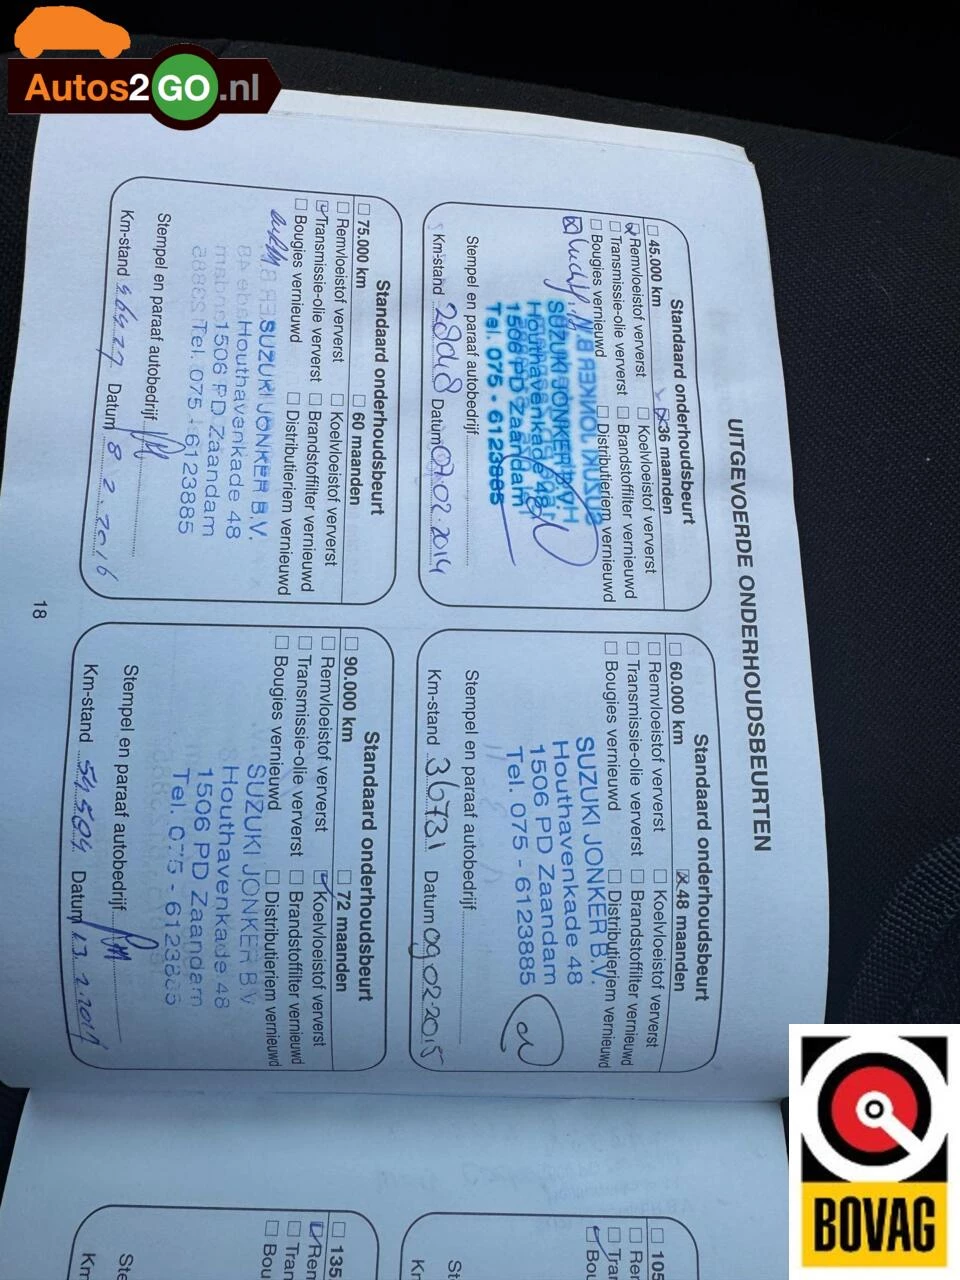 Autos2GO.nl
UITGEVOERDE ONDERHOUDSBEURTEN
Standaard onderhoudsbeurt
45.000 km
36 maanden
Remvloeistof ververst
Koelvloeistof ververst
Transmissie-olie ververst
Brandstoffilter vernieuwd
Bougies vernieuwd
Distributieriem vernieuwd
SUZUKI JONKER B.V.
Houthavenkade 48
1506 PD Zaandam
Tel. 075 - 6123885
Stempel en paraaf autobedrijf
Km-stand 28048 Datum 07.02.2014
Standaard onderhoudsbeurt
60.000 km
48 maanden
Remvloeistof ververst
Koelvloeistof ververst
Transmissie-olie ververst
Brandstoffilter vernieuwd
Bougies vernieuwd
Distributieriem vernieuwd
SUZUKI JONKER B.V.
Houthavenkade 48
1506 PD Zaandam
Tel. 075 - 6123885
Stempel en paraaf autobedrijf
Km-stand 36731 Datum 09.02.2015
Standaard onderhoudsbeurt
75.000 km
60 maanden
Remvloeistof ververst
Koelvloeistof ververst
Transmissie-olie ververst
Brandstoffilter vernieuwd
Bougies vernieuwd
Distributieriem vernieuwd
SUZUKI JONKER B.V.
Houthavenkade 48
1506 PD Zaandam
Tel. 075 - 6123885
Stempel en paraaf autobedrijf
Km-stand Datum 8 2 2016
Standaard onderhoudsbeurt
90.000 km
72 maanden
Remvloeistof ververst
Koelvloeistof ververst
Transmissie-olie ververst
Brandstoffilter vernieuwd
Bougies vernieuwd
Distributieriem vernieuwd
SUZUKI JONKER B.V.
Houthavenkade 48
1506 PD Zaandam
Tel. 075 - 6123885
Stempel en paraaf autobedrijf
Km-stand 54504 Datum
18
105
Rem
Tran
Bou
Ste
Km
135
Rem
Tran
Bou
Ste
Km
BOVAG